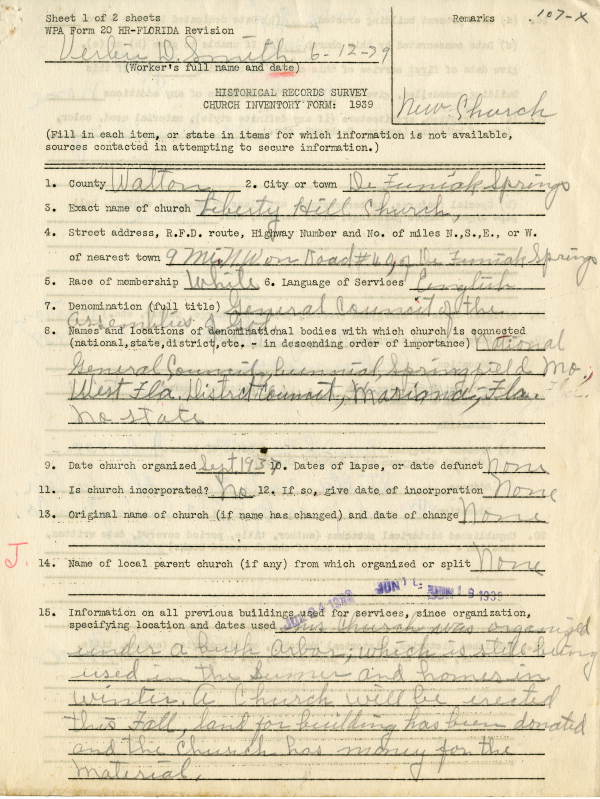 Sheet 1 of 2 sheets
Remarks
107-X
WPA Form 20 HR-FLORIDA Revision
D. Smith 6-12-39
(Worker's full name and date)
HISTORICAL RECORDS SURVEY
CHURCH INVENTORY FORM: 1939
New Church
(Fill in each item, or state in items for which information is not available,
sources contacted in attempting to secure information.)
1. County Walton 2. City or town De Funiak Springs
3. Exact name of church Liberty Hill Church,
4. Street address, R.F.D. route, Highway Number and No. of miles N.,S.,E., or W.
of nearest town 9 Mi N W on Road # of De Funiak Springs
5. Race of membership White 6. Language of Services English
7. Denomination (full title) General Council of the
Assemblies of God
8. Names and locations of denominational bodies with which church is connected
(national,state,district,etc. - in descending order of importance) National
General Council, biennial, Springfield Mo.,
West Fla. District Council, Marianna, Fla.
No state
9. Date church organized Sept. 1937 10. Dates of lapse, or date defunct None
11. Is church incorporated? No 12. If so, give date of incorporation None
13. Original name of church (if name has changed) and date of change None
J.
14. Name of local parent church (if any) from which organized or split None
JUN 19 1939
15. Information on all previous buildings used for services, since organization,
specifying location and dates used This Church was organized
under a bush arbor, which is still being
used in the Summer and homes in
winter. A Church will be erected
this Fall, land for building has been donated
and the Church has money for the
material.